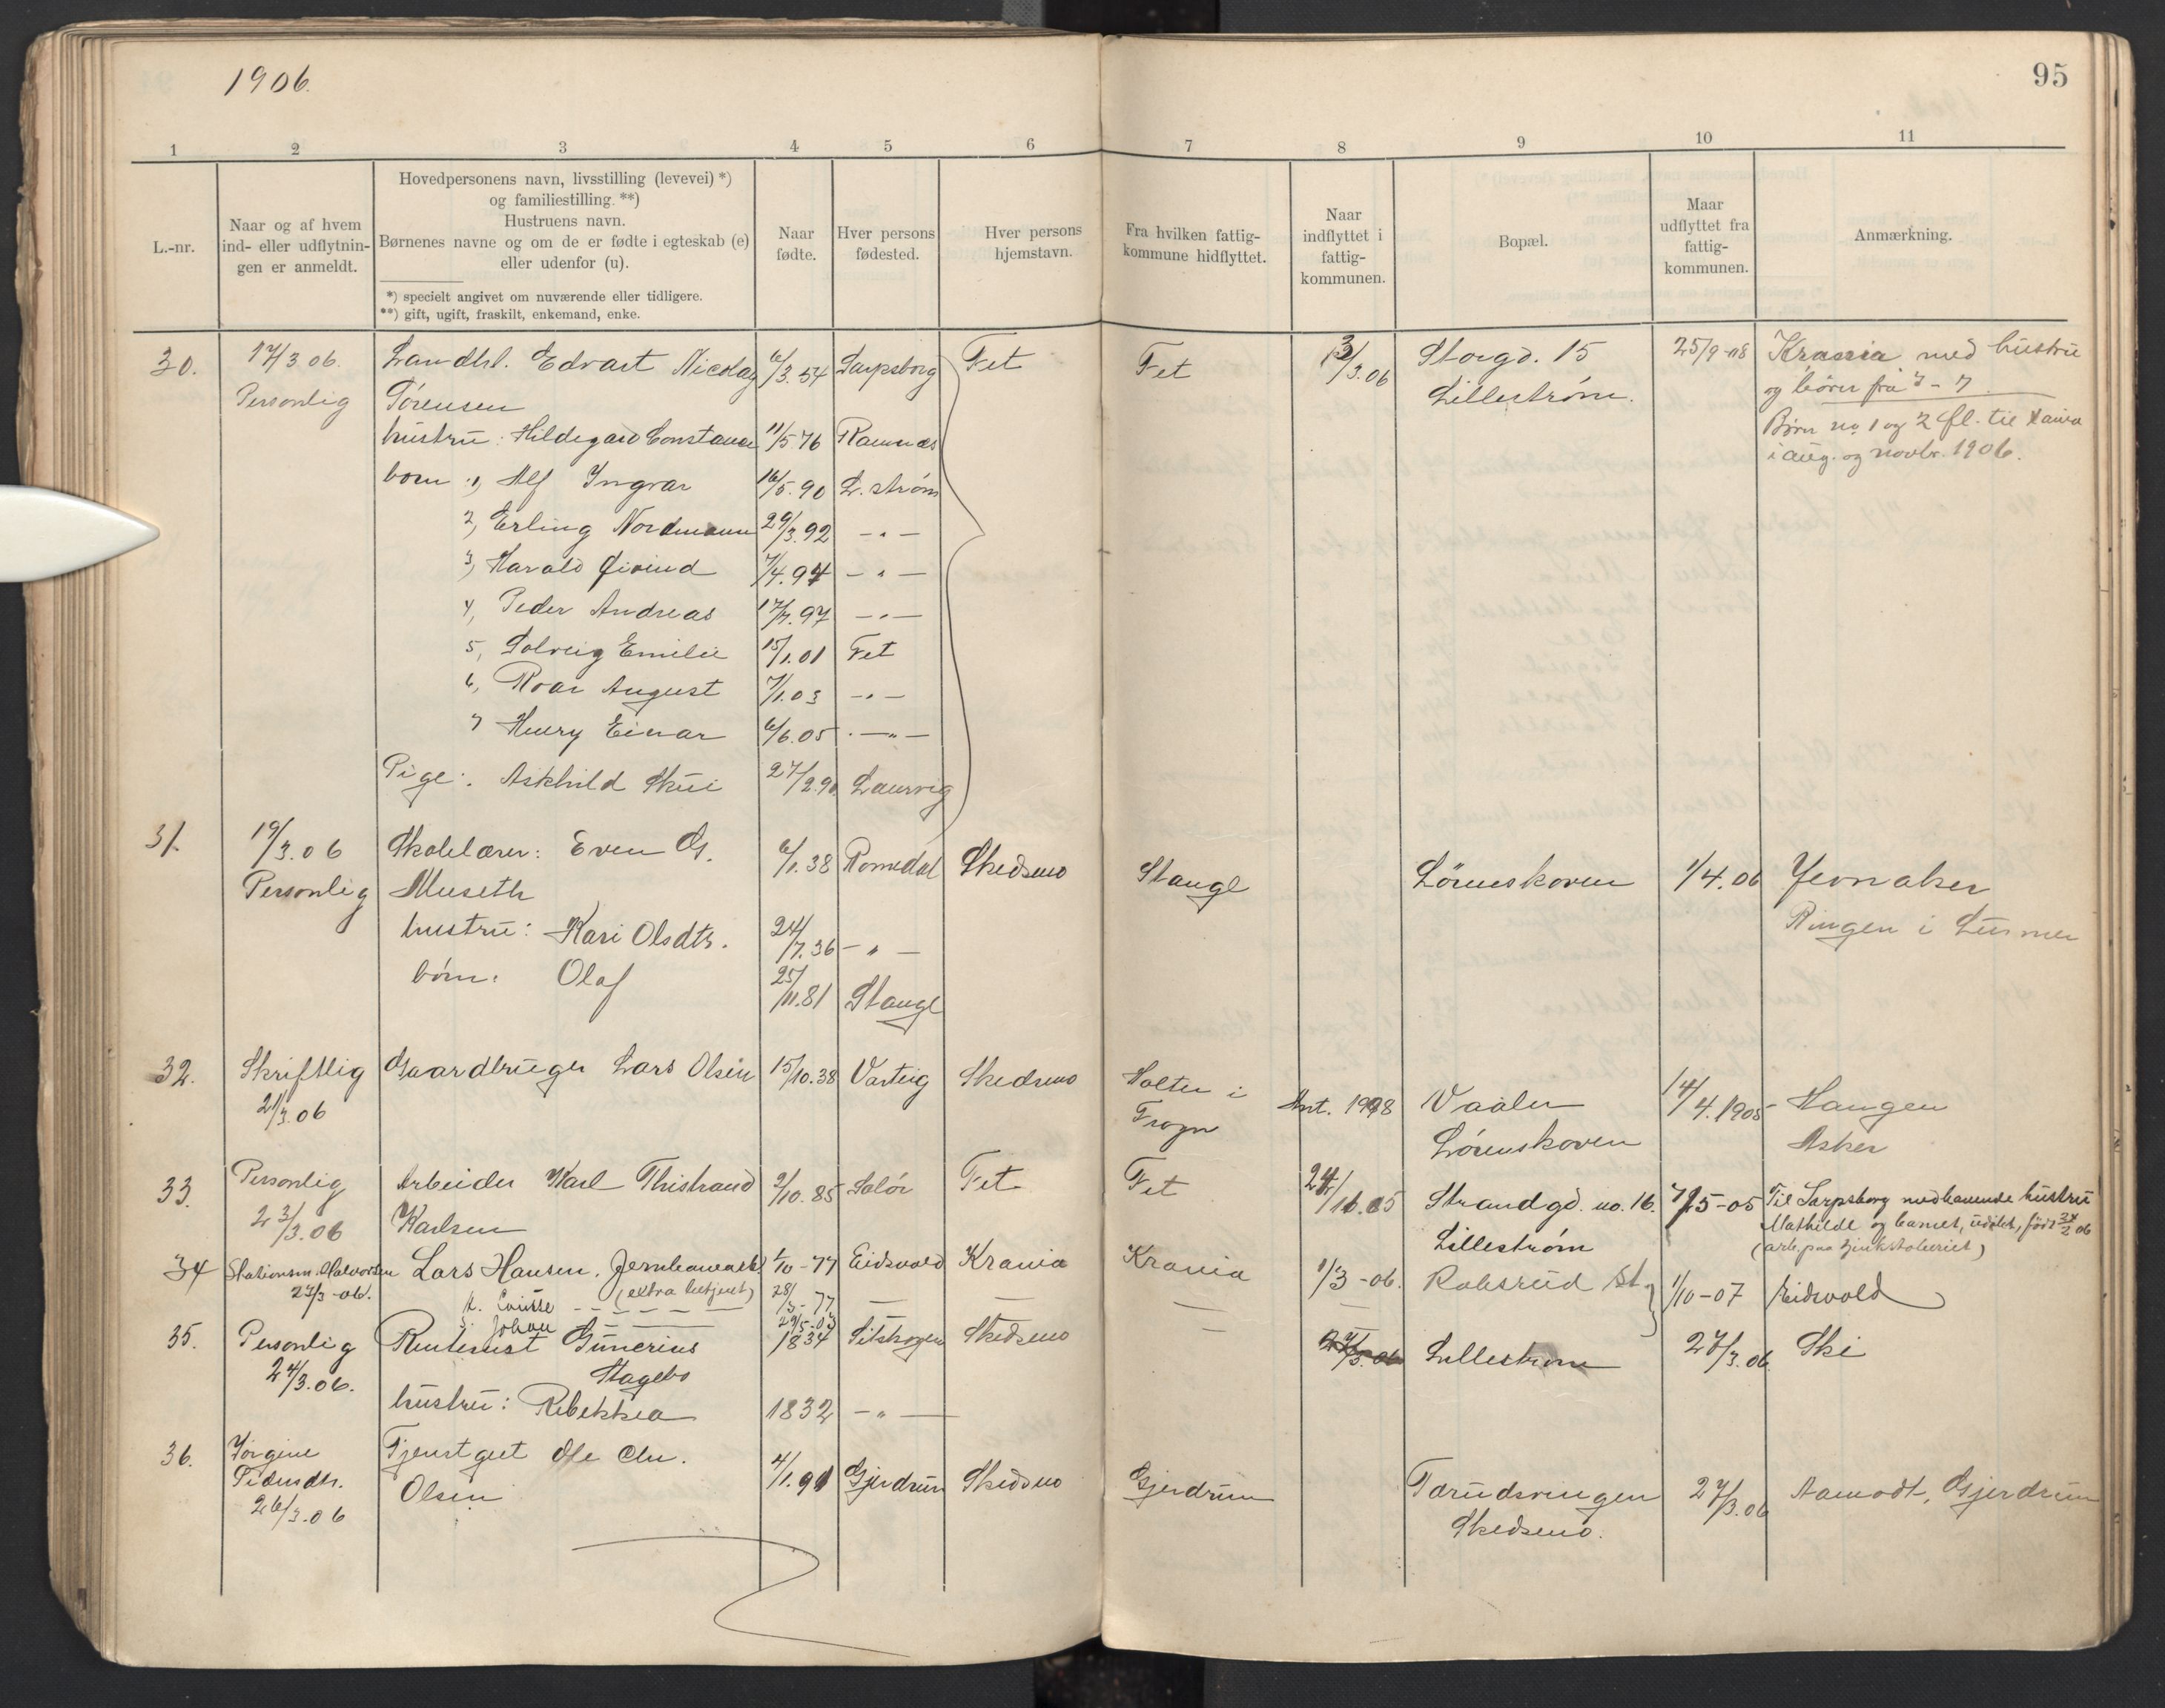 1906.
95
1 2 3 4 5 6 7 8 9 10 11
L.-nr.
Naar og af hvem
ind- eller udflytnin-
gen er anmeldt.
Hovedpersonens navn, livsstilling (levevei) *)
og familiestilling. **)
Hustruens navn.
Børnenes navne og om de er fødte i egteskab (e)
eller udenfor (u).
*) specielt angivet om nuværende eller tidligere.
**) gift, ugift, fraskilt, enkemand, enke.
Naar
fødte.
Hver persons
fødested.
Hver persons
hjemstavn.
Fra hvilken fattig-
kommune hidflyttet.
Naar
indflyttet i
fattig-
kommunen.
Bopæl.
Maar
udflyttet fra
fattig-
kommunen.
Anmærkning.
30. 17/3 06. Landhl. Edvart Nicolay 6/3.54 Sarpsborg Fet Fet 13/3.06 Storgd. 15 25/9-08 Krania med hustru
Personlig Sørensen Lillestrøm. og børn fra 3-7
hustru: Hildegard Constance 11/5 76 Ramnæs Børn no 1 og 2 fl. til Krania
born 1, Alf Ingvar 16/5.90 L.strøm i aug. og novbr. 1906.
2, Erling Nordmann 29/3.92 -"-
3, Harald Øivind 7/4.94 -"-
4, Peder Andreas 17/7.97 -"-
5, Solveig Emilie 15/1.01 Fet
6, Roar August 7/1.03 -"-
7 Henry Einar 6/6.05 -"-
Pige: Askhild Skui 27/2.90 Laurvig
31. 19/3.06 Skolelærer: Even G. 6/1.38 Romedal Skedsmo Stange Lörenskoven 1/4.06 Jevnaker
Personlig Museth Ringen i Lunner
hustru: Kari Olsdtr. 24/7.36 -"-
børn: Olaf 25/11.81 Stange
32. Skriftlig Gaardbruger Lars Olsen 15/10.38 Varteig Skedsmo Holter i Ant. 1998 Vaaler 14/4.1905 Haugen
21/3.06 Frogn Lörenskoven Asker
33. Personlig Arbeider Karl Thistrand 2/10.85 Solör Fet Fet 24/10.05 Strandgd. no. 16. 7/5-05 Til Sarpsborg medhavende hustru
23/3.06 Karlsen Lillestrøm Mathilde og barnet, udøbt, født 24/2 06
34 Stationsm. Halvorsen Lars Hansen. Jernbanearb. 1/10-77 Eidsvold Krania Krania 1/3-06. Robsrud St. 1/10-07 Eidsvold
27/3-06. (extra betjent)
h. Louise 28/3-77
s. Johan 29/5-03
35. Personlig Rentenist Gunerius 1834 Sitskogen Skedsmo Lillestrøm 27/3.06 Ski
24/3.06. Hagebo
hustru: Rebekkea 1832 -"-
36. Jørgine Tjenstgut Ole Chr. 4/1.91 Gjerdrum Skedsmo Gjerdrum Tærudsvingen 27/3.06 Aamodt, Gjerdrum
Pedersdtr. Olsen Skedsmo.
26/3.06